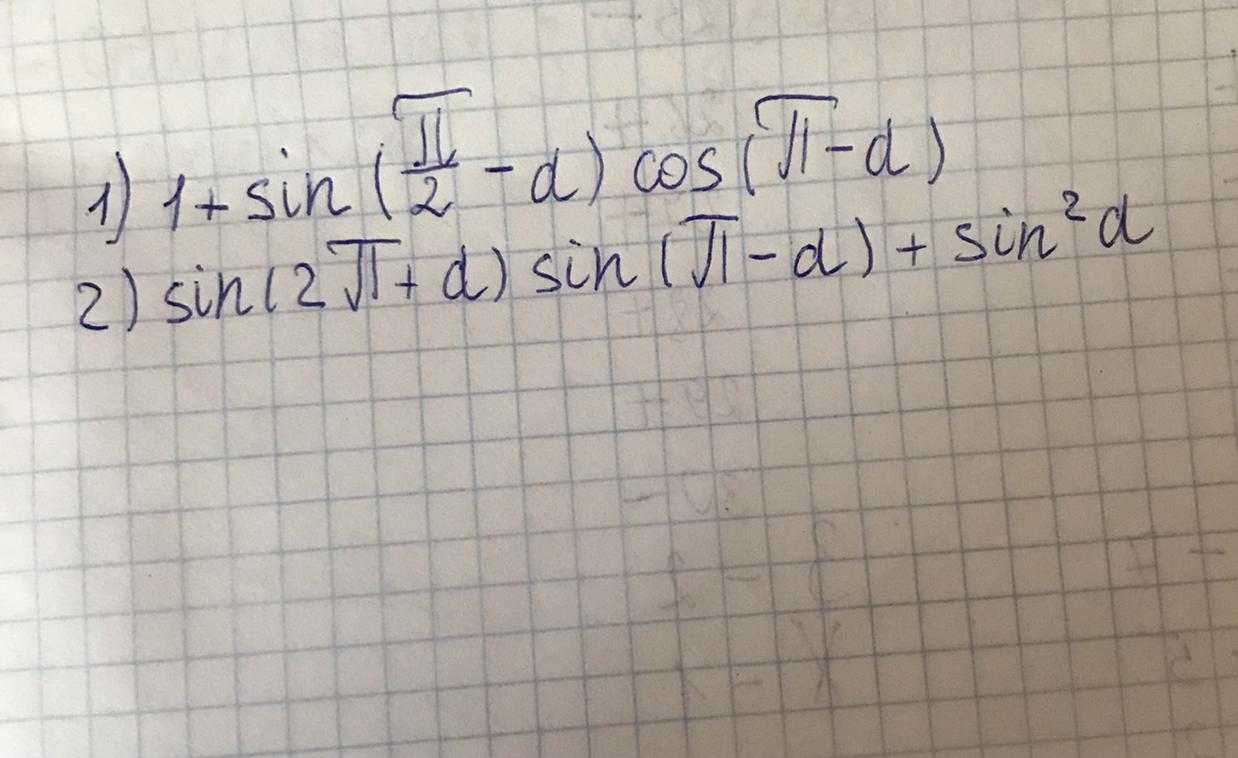 1) 1 + sin(π/2 - d) cos(π - d)
2) sin(2π + d) sin(π - d) + sin²d